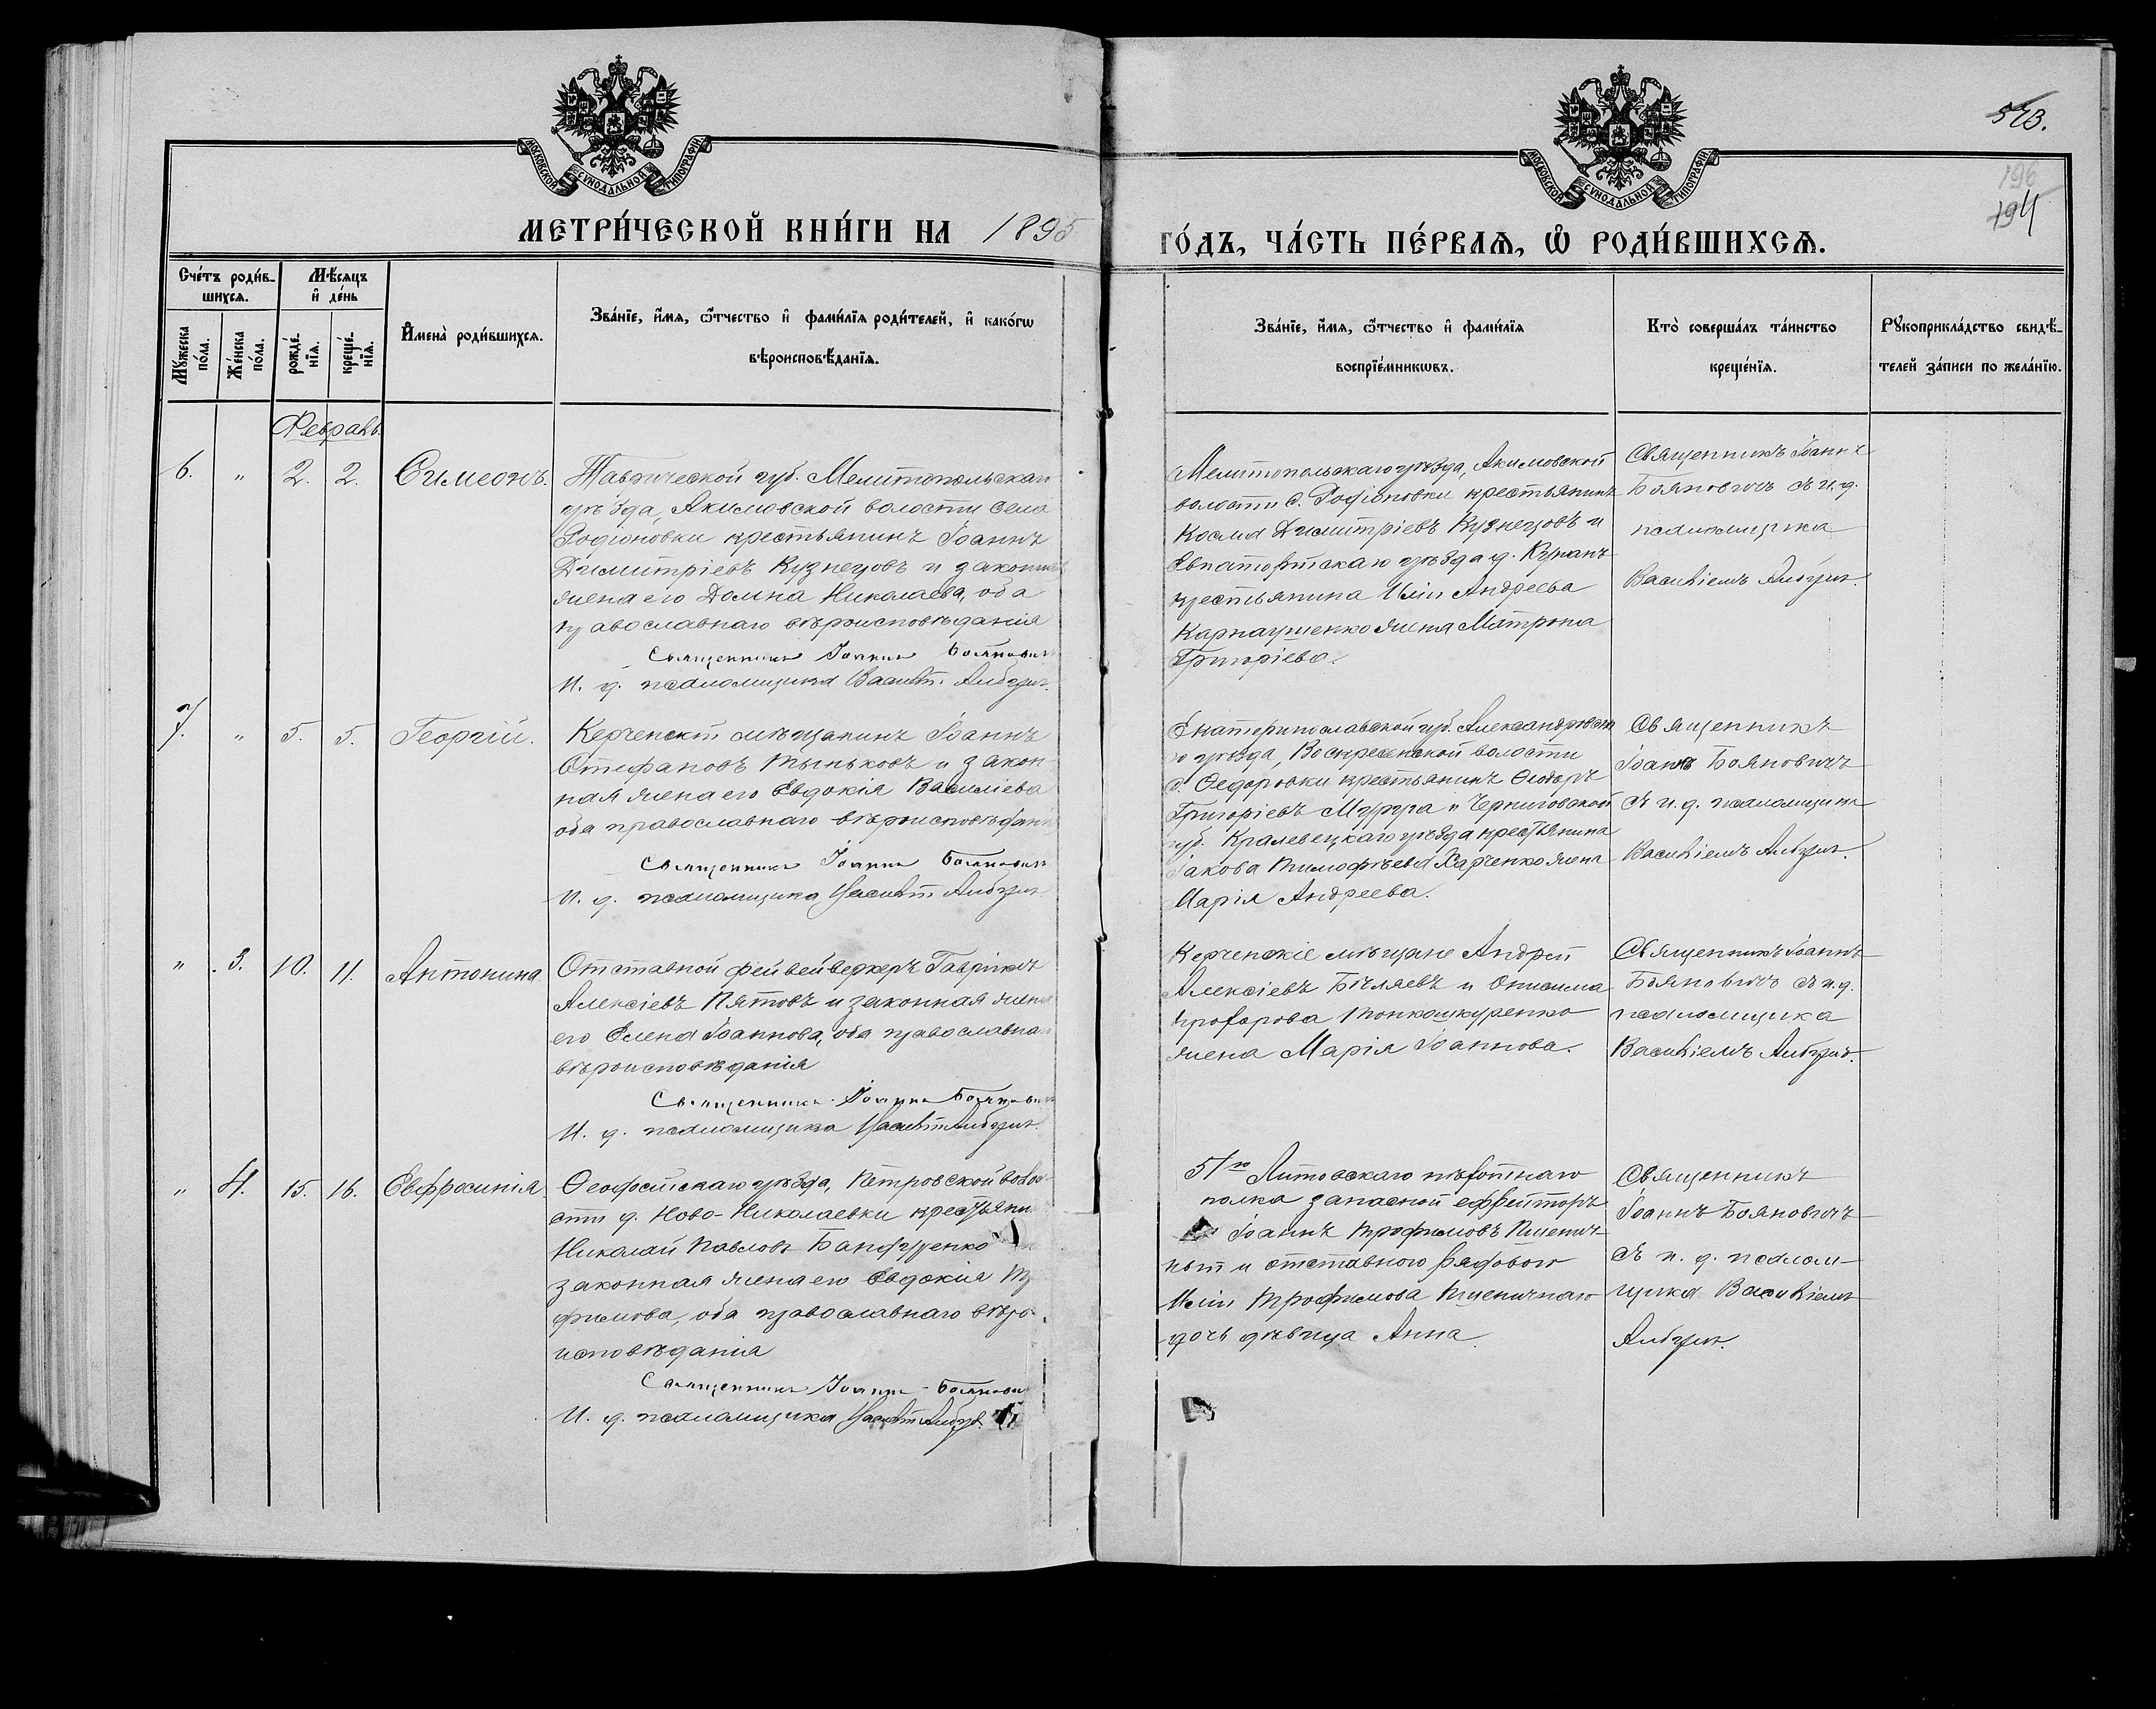 523.
196
194
МОСКОВСКОЙ СѴНОДАЛЬНОЙ ТИПОГРАФІИ
МОСКОВСКОЙ СѴНОДАЛЬНОЙ ТИПОГРАФІИ
МЕТРИ́ЧЕСКОЙ КНИ́ГИ НА 1895 ГО́ДЪ, ЧА́СТЬ ПЕ́РВАѦ, Ѽ РОДИ́ВШИХСѦ.
Сче́тъ роди́в-
шихсѧ.
Мꙋ́жеска по́ла.
Же́нска по́ла.
Мѣ́сѧцъ
и҆ де́нь
рожде́-
нїѧ.
креще́-
нїѧ.
И҆мена̀ роди́вшихсѧ.
Зва́нїе, и҆́мѧ, ѻ҆́тчество и҆ фами́лїѧ роди́телей, и҆ како́гѡ
вѣроисповѣ́данїѧ.
Зва́нїе, и҆́мѧ, ѻ҆́тчество и҆ фами́лїѧ
воспрїе́мникѡвъ.
Кто̀ соверша́лъ та́инство
креще́нїѧ.
Рꙋкоприкла́дство свидѣ́-
телей за́писи по жела́нїю.
Февраль.
6. " 2. 2. Симеонъ.
Таврической губ. Мелитопольскаго
уѣзда, Акимовской волости села
Родіоновки крестьянинъ Іоаннъ
Димитріевъ Кузнецовъ и законная
жена его Домна Николаева, оба
православнаго вѣроисповѣданія
Священникъ Іоаннъ Бояновичъ
И. д. псаломщика Василій
Мелитопольскаго уѣзда, Акимовской
волости с. Родіоновки крестьянинъ
Косма Димитріевъ Кузнецовъ и
Евпаторійскаго уѣзда д.
крестьянина Иліи Андреева
Карнаушенко жена Матрона
Григоріева.
Священникъ Іоаннъ
Бояновичъ съ и. д.
псаломщика
Василіемъ
7. " 5. 5. Георгій.
Керченскій мѣщанинъ Іоаннъ
Стефановъ Тыньковъ и закон-
ная жена его Евдокія Василіева
оба православнаго вѣроисповѣданія
Священникъ Іоаннъ Бояновичъ
И. д. псаломщика Василій
Екатеринославской губ. Александровска
го уѣзда, Воскресенской волости
с. Ѳедоровки крестьянинъ Ѳеодоръ
Григоріевъ и Черниговской
губ. Кралевецкаго уѣзда крестьянина
Іакова Тимофѣева Харченко жена
Марія Андреева.
Священникъ
Іоаннъ Бояновичъ
съ и. д. псаломщика
Василіемъ
" 3. 10. 11. Антонина
Отставной фейервейкеръ Гавріилъ
Алексіевъ Пятовъ и законная жена
его Елена Іоаннова, оба православнаго
вѣроисповѣданія
Священникъ Іоаннъ Бояновичъ
И. д. псаломщика Василій
Керченскіе мѣщане Андрей
Алексіевъ Бѣляевъ и Онисима
Прохорова Тонкошкуренко
жена Марія Іоаннова.
Священникъ Іоаннъ
Бояновичъ съ и. д.
псаломщика
Василіемъ
" 4. 15. 16. Евфросинія
Ѳеодосійскаго уѣзда, Петровской воло-
сти д. Ново-Николаевки крестьянинъ
Николай Павловъ Бандуренко
законная жена его Евдокія Тро
фимова, оба православнаго вѣро-
исповѣданія
Священникъ Іоаннъ Бояновичъ
И. д. псаломщика Василій
51го Литовскаго пѣхотнаго
полка запасной ефрейторъ
Іоаннъ Трофимовъ Пшенич-
ный и отставного рядового
Иліи Трофимова Пшеничнаго
дочь дѣвица Анна.
Священникъ
Іоаннъ Бояновичъ
съ и. д. псалом-
щика Василіемъ